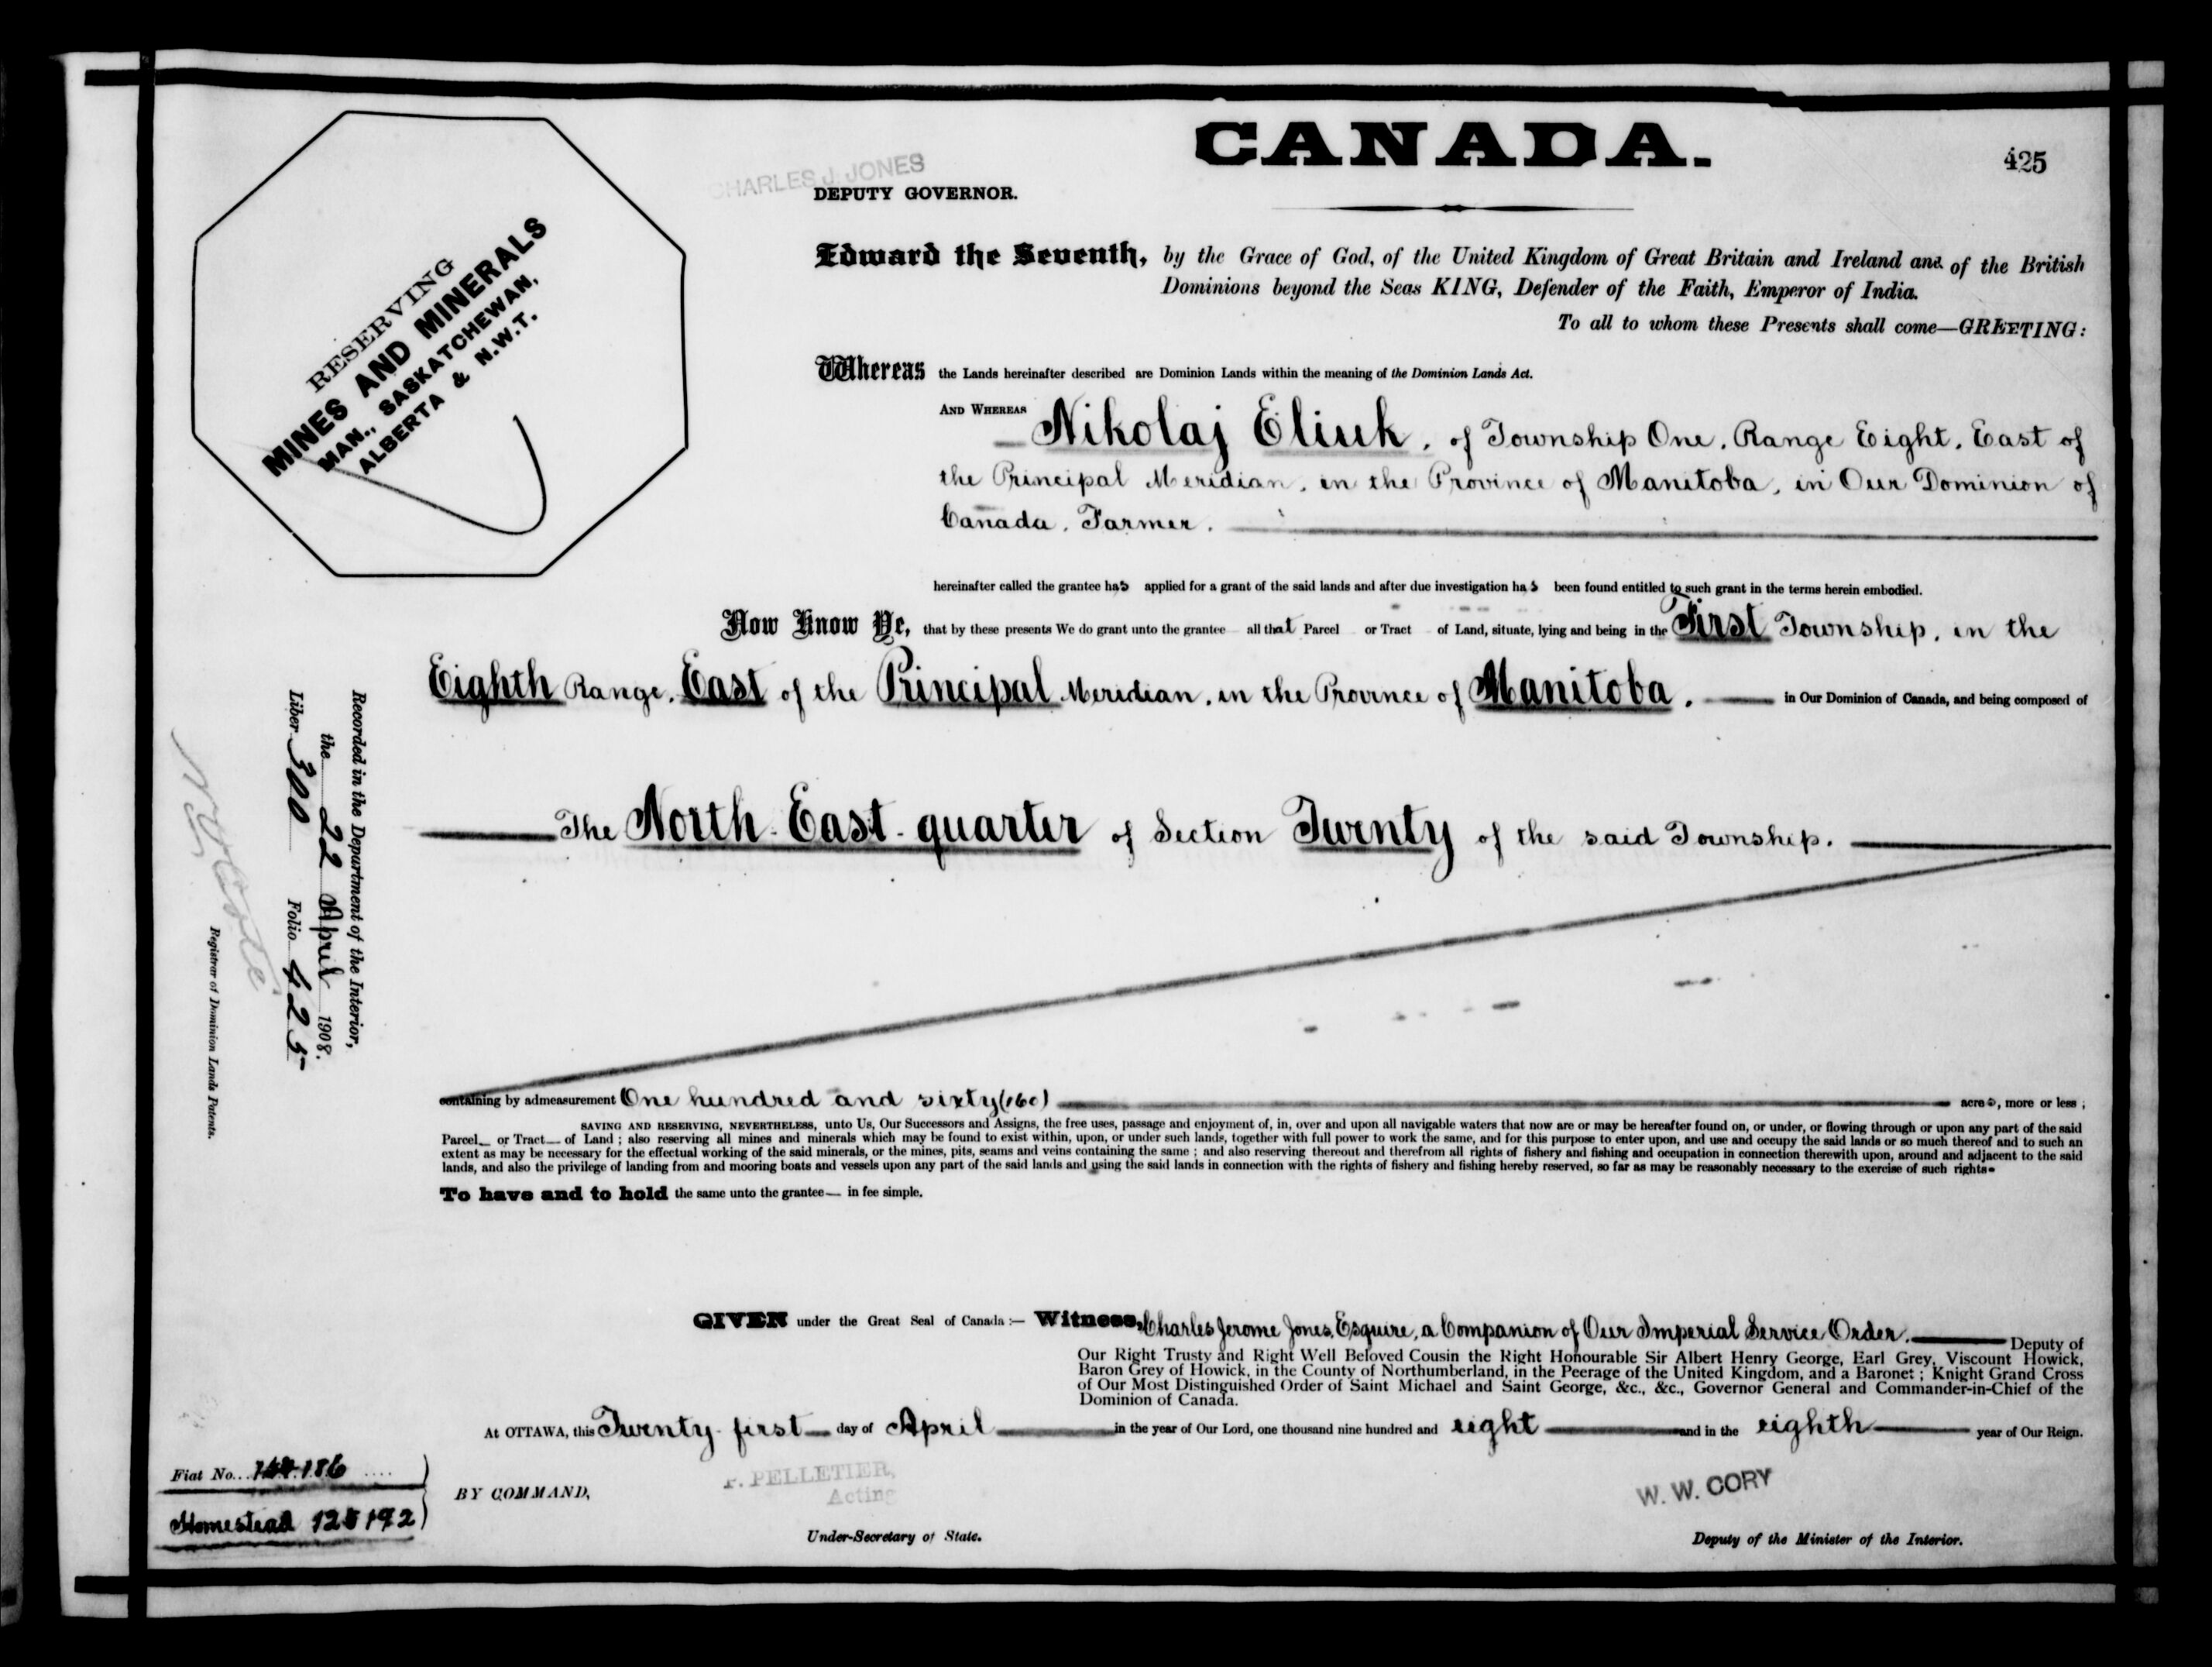 CANADA.
425
CHARLES J. JONES
DEPUTY GOVERNOR.
RESERVING
MINES AND MINERALS
MAN., SASKATCHEWAN,
ALBERTA & N.W.T.
Edward the Seventh, by the Grace of God, of the United Kingdom of Great Britain and Ireland and of the British
Dominions beyond the Seas KING, Defender of the Faith, Emperor of India.
To all to whom these Presents shall come—GREETING:
Whereas the Lands hereinafter described are Dominion Lands within the meaning of the Dominion Lands Act.
AND WHEREAS
Nikolaj Eliuk, of Township One, Range Eight, East of
the Principal Meridian, in the Province of Manitoba, in Our Dominion of
Canada, Farmer.
hereinafter called the grantee has applied for a grant of the said lands and after due investigation has been found entitled to such grant in the terms herein embodied.
Now Know Ye, that by these presents We do grant unto the grantee all that Parcel or Tract of Land, situate, lying and being in the First Township, in the
Eighth Range, East of the Principal Meridian, in the Province of Manitoba. in Our Dominion of Canada, and being composed of
The North-East-quarter of Section Twenty of the said Township.
containing by admeasurement One hundred and sixty (160) acres, more or less;
SAVING AND RESERVING, NEVERTHELESS, unto Us, Our Successors and Assigns, the free uses, passage and enjoyment of, in, over and upon all navigable waters that now are or may be hereafter found on, or under, or flowing through or upon any part of the said
Parcel or Tract of Land; also reserving all mines and minerals which may be found to exist within, upon, or under such lands, together with full power to work the same, and for this purpose to enter upon, and use and occupy the said lands or so much thereof and to such an
extent as may be necessary for the effectual working of the said minerals, or the mines, pits, seams and veins containing the same; and also reserving thereout and therefrom all rights of fishery and fishing and occupation in connection therewith upon, around and adjacent to the said
lands, and also the privilege of landing from and mooring boats and vessels upon any part of the said lands and using the said lands in connection with the rights of fishery and fishing hereby reserved, so far as may be reasonably necessary to the exercise of such rights.
To have and to hold the same unto the grantee in fee simple.
Recorded in the Department of the Interior,
the 22 April 1908.
Liber 300 Folio 425
Registrar of Dominion Lands Patents.
GIVEN under the Great Seal of Canada:— Witness, Charles Jerome Jones, Esquire, a Companion of Our Imperial Service Order. Deputy of
Our Right Trusty and Right Well Beloved Cousin the Right Honourable Sir Albert Henry George, Earl Grey, Viscount Howick,
Baron Grey of Howick, in the County of Northumberland, in the Peerage of the United Kingdom, and a Baronet; Knight Grand Cross
of Our Most Distinguished Order of Saint Michael and Saint George, &c., &c., Governor General and Commander-in-Chief of the
Dominion of Canada.
At OTTAWA, this Twenty-first day of April in the year of Our Lord, one thousand nine hundred and eight and in the eighth year of Our Reign.
Fiat No.
BY COMMAND,
P. PELLETIER,
Acting
W. W. CORY
Homestead
Under-Secretary of State.
Deputy of the Minister of the Interior.